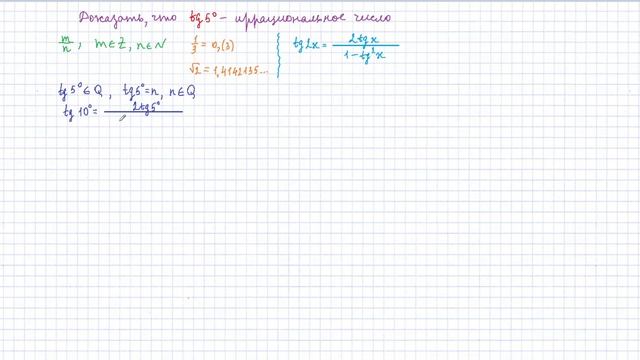 Доказать, что tg5° – иррациональное число
m/n, m∈Z, n∈N
1/3 = 0,(3)
√2 = 1,4142135...
tg2x = 2tgx / 1 – tg²x
tg5°∈Q, tg5°=n, n∈Q
tg10° = 2tg5°